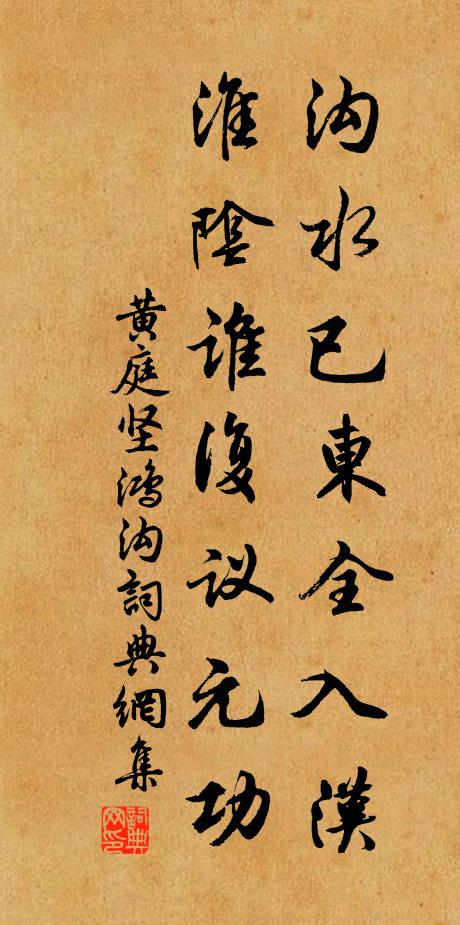 沟水已東全入漢
淮陰誰復议元功
黄庭坚鴻沟詞典網集
詞典网印